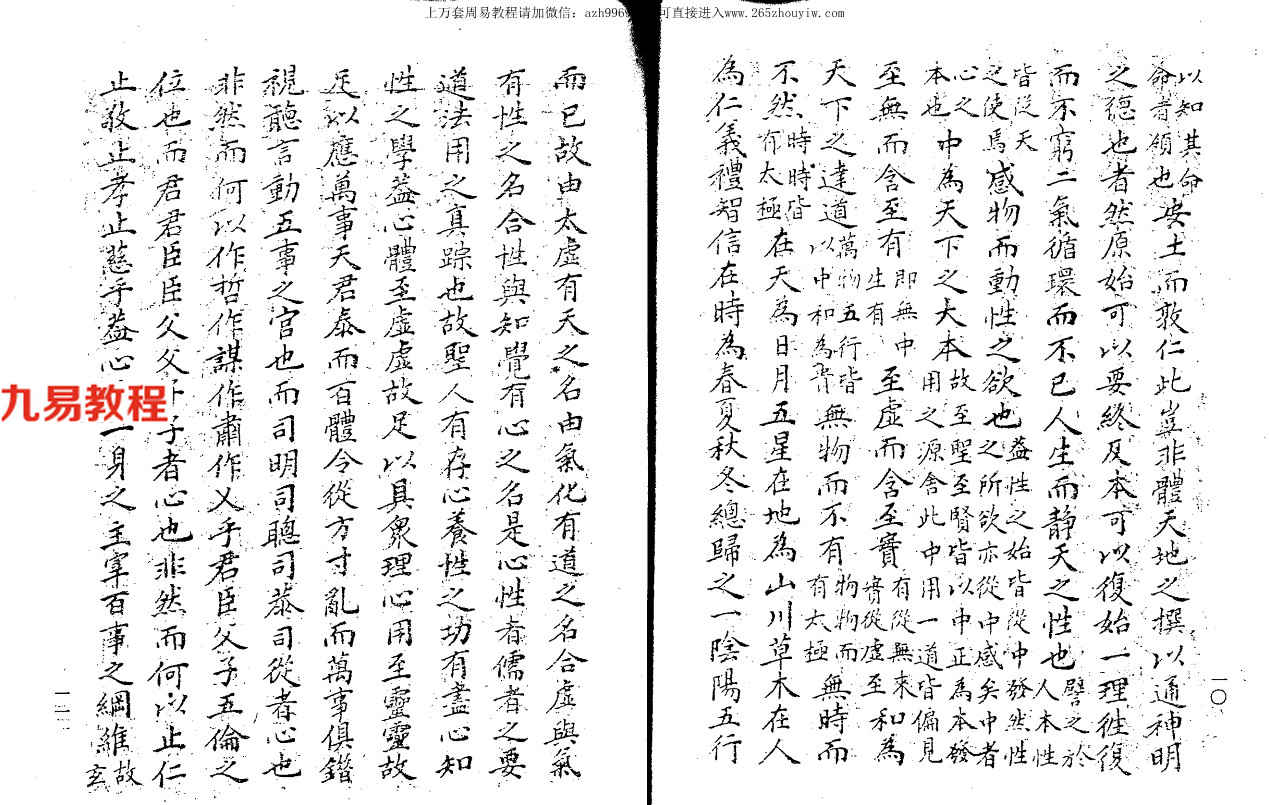 上万套周易教程请加微信：azh9969 可直接进入www.265zhouyiw.com
以知其命
命者領也
安土而敦仁此豈非體天地之撰以通神明
之德也者然原始可以要終反本可以復始一理往復
而不窮二氣循環而不已人生而静天之性也
譬之於
人本性
皆從天
之使焉
感物而動性之欲也
蓋性之始皆從中發然性
之所欲亦從中感矣中者
心之
本也
中為天下之大本
故至聖至賢皆以中正為本發
用之源舍此中用一道皆偏見
至無而含至有
即無中
生有
至虛而含至實
有從無来
實從虛至
和為
天下之達道
萬物五行皆
以中和為育
無物而不有
物物而
有太極
無時而
不然
時時皆
有太極
在天為日月五星在地為山川草木在人
為仁義禮智信在時為春夏秋冬總歸之一陰陽五行
一〇
而已故由太虛有天之名由氣化有道之名合虛與氣
有性之名合性與知覺有心之名是心性者儒者之要
道法用之真踪也故聖人有存心養性之功有盡心知
性之學蓋心體至虛虛故足以具衆理心用至靈靈故
足以應萬事天君泰而百體令從方寸亂而萬事俱錯
視聽言動五事之官也而司明司聰司恭司從者心也
非然而何以作哲作謀作肅作乂乎君臣父子五倫之
位也而君君臣臣父父子子者心也非然而何以止仁
止敬止孝止慈乎蓋心一身之主宰百事之綱維
故
玄
一一
九易教程